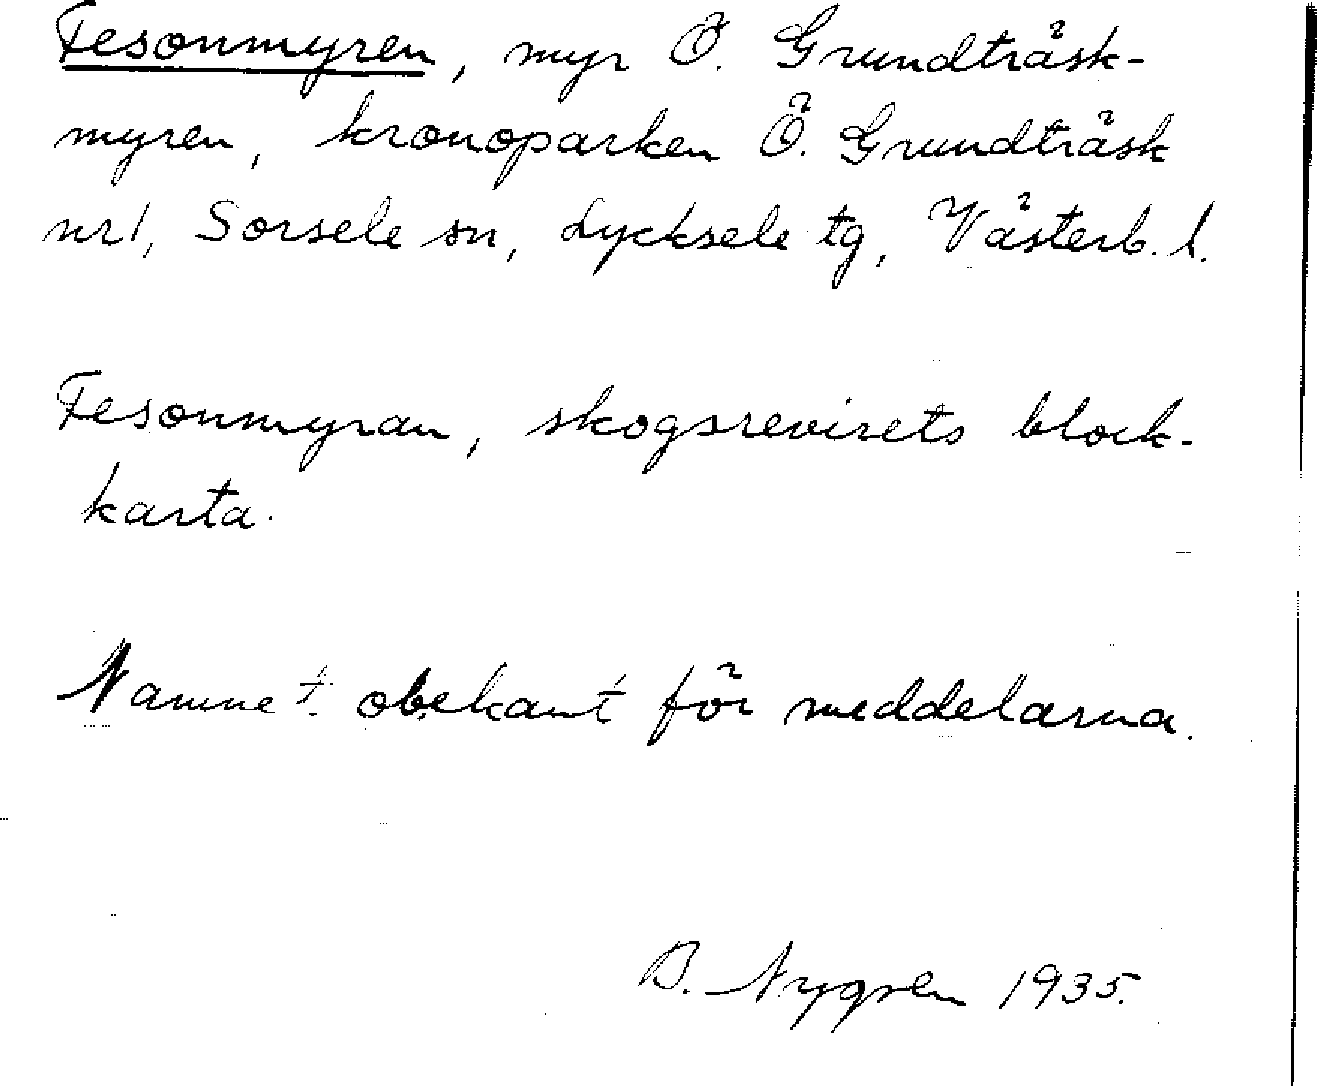 Fesonmyren, myr Ö. Grundträsk-
myren, kronoparken Ö. Grundträsk
nr 1, Sorsele sn, Lycksele tg, Västerb. l.
Fesonmyran, skogsrevirets block-
karta.
Namnet obekant för meddelarna.
B. Nygren 1935.